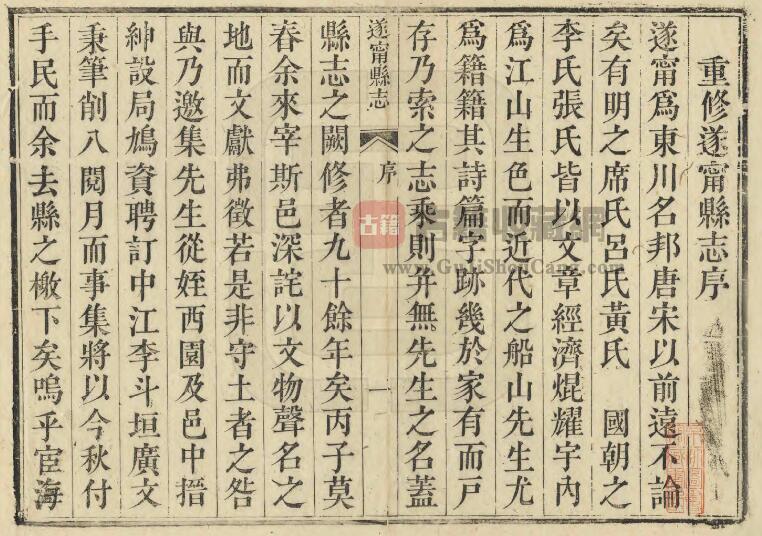 重修遂甯縣志序
遂甯爲東川名邦唐宋以前遠不論
矣有明之席氏呂氏黃氏　國朝之
李氏張氏皆以文章經濟焜耀宇內
爲江山生色而近代之船山先生尤
爲籍籍其詩篇字跡幾於家有而戶
存乃索之志乘則并無先生之名蓋
遂甯縣志　序　一
縣志之闕修者九十餘年矣丙子莫
春余來宰斯邑深詫以文物聲名之
地而文獻弗徵若是非守土者之咎
與乃邀集先生從姪西園及邑中搢
紳設局鳩資聘訂中江李斗垣廣文
秉筆削八閱月而事集將以今秋付
手民而余去縣之檄下矣嗚乎宦海
古籍
古籍收藏網
www.GujiShouCang.com